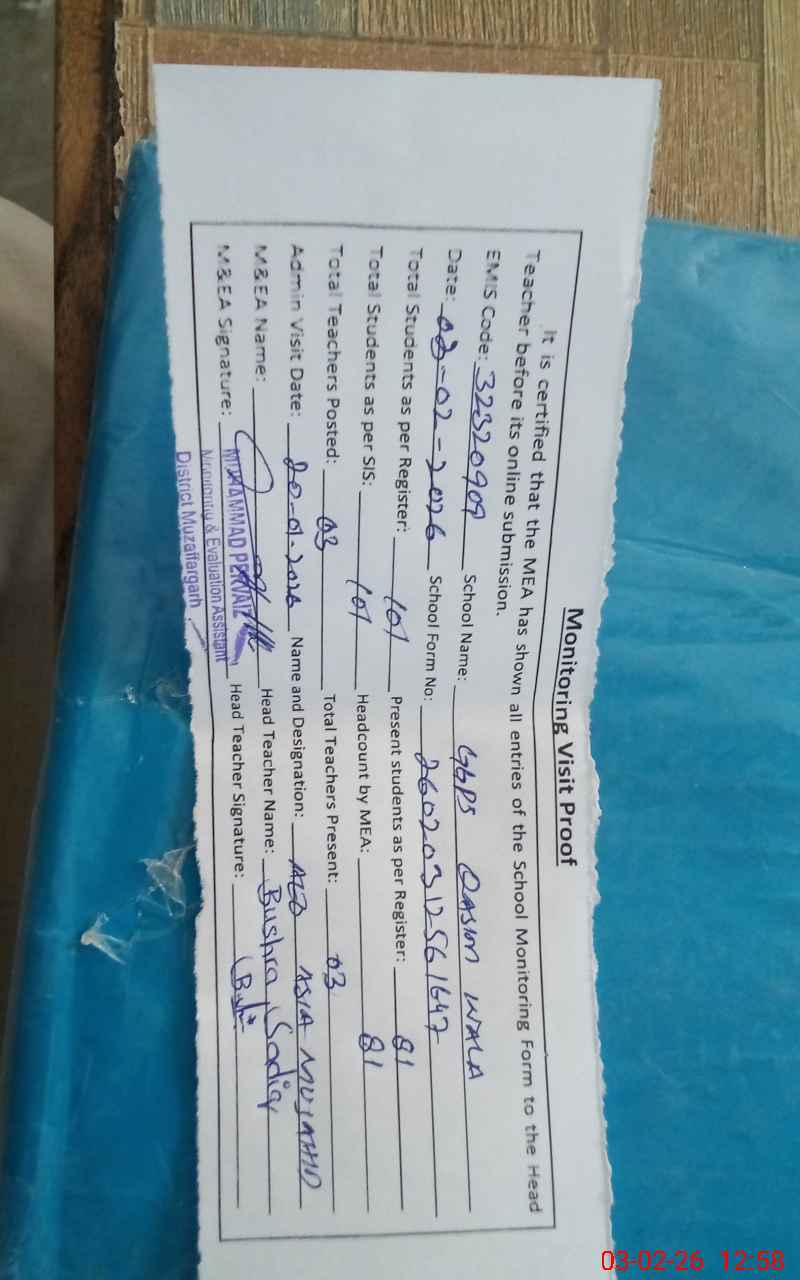 Monitoring Visit Proof
It is certified that the MEA has shown all entries of the School Monitoring Form to the Head
Teacher before its online submission.
EMIS Code: 32320909 School Name: GGPS QASIM WALA
Date: 03-02-2026 School Form No: 26020312561647
Total Students as per Register: 101 Present students as per Register: 81
Total Students as per SIS: 101 Headcount by MEA: 81
Total Teachers Posted: 03 Total Teachers Present: 03
Admin Visit Date: 20-01-2026 Name and Designation: AEO ASIA MUJAHID
M&EA Name: Head Teacher Name: Bushra Sadiq
M&EA Signature: Head Teacher Signature:
MUHAMMAD PERVAIZ
Monitoring & Evaluation Assistant
District Muzaffargarh
03-02-26 12:58